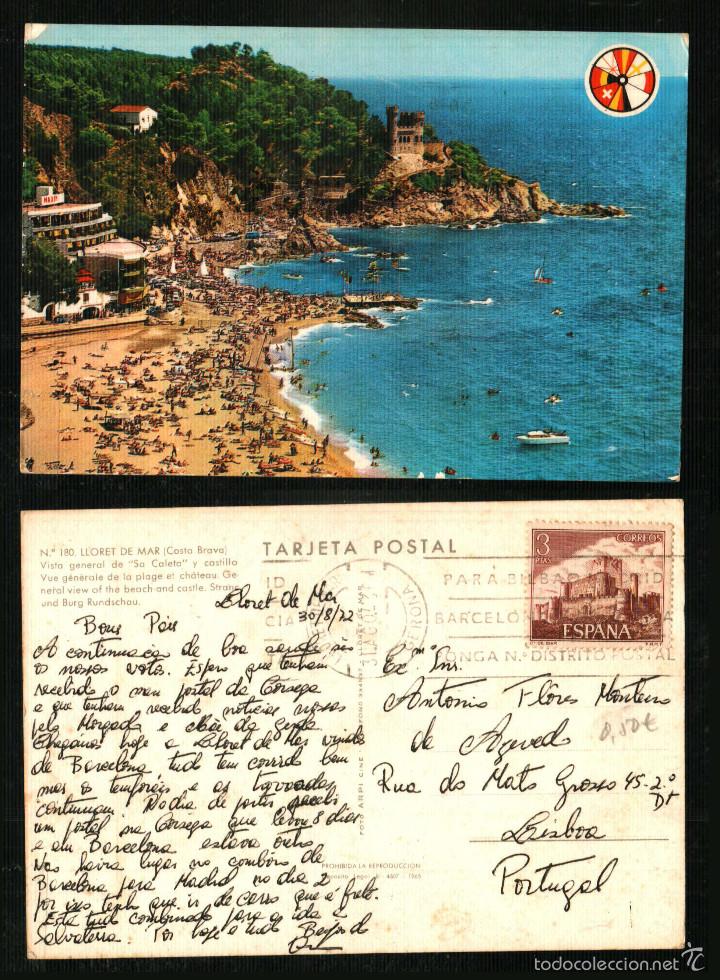 MAXIM
N.º 180. LLORET DE MAR (Costa Brava)
Vista general de "Sa Caleta" y castillo
Vue générale de la plage et château. Ge-
neral view of the beach and castle. Strand
und Burg Rundschau.
TARJETA POSTAL
3
PTAS
CORREOS
ESPAÑA
PARA BILBAO MADRID
BARCELONA
PONGA N.º DISTRITO POSTAL
GERONA
Lloret de Mar
30/8/72
Bons Pais
A continuação de boa saude são
os nossos votos. Espero que tenham
recebido o meu postal da Córsega
e que tenham recebido noticias nossas
pelo Morgado e
Chegámos hoje a Lloret de Mar vindos
de Barcelona tudo tem corrido bem
mas os temporais e as trovoadas
continuam. No dia de
um postal na Córsega que levou 8 dias
e em Barcelona estava outro
Nao havia lugar no comboio de
Barcelona para Madrid no dia 2
por isso tenho que ir de carro que é frete.
Está tudo combinado para a ida a
Salvaterra. Por hoje é tudo Beijos do
Exmº Snr.
Antonio Flôres Monteiro
de Azevedo
0,50€
Rua do Mato Grosso 45-2º
Dt
Lisboa
Portugal
FOTO ARPI CINE
PROHIBIDA LA REPRODUCCION
Depósito Legal B. 4607 - 1965
todocoleccion
todocoleccion.net